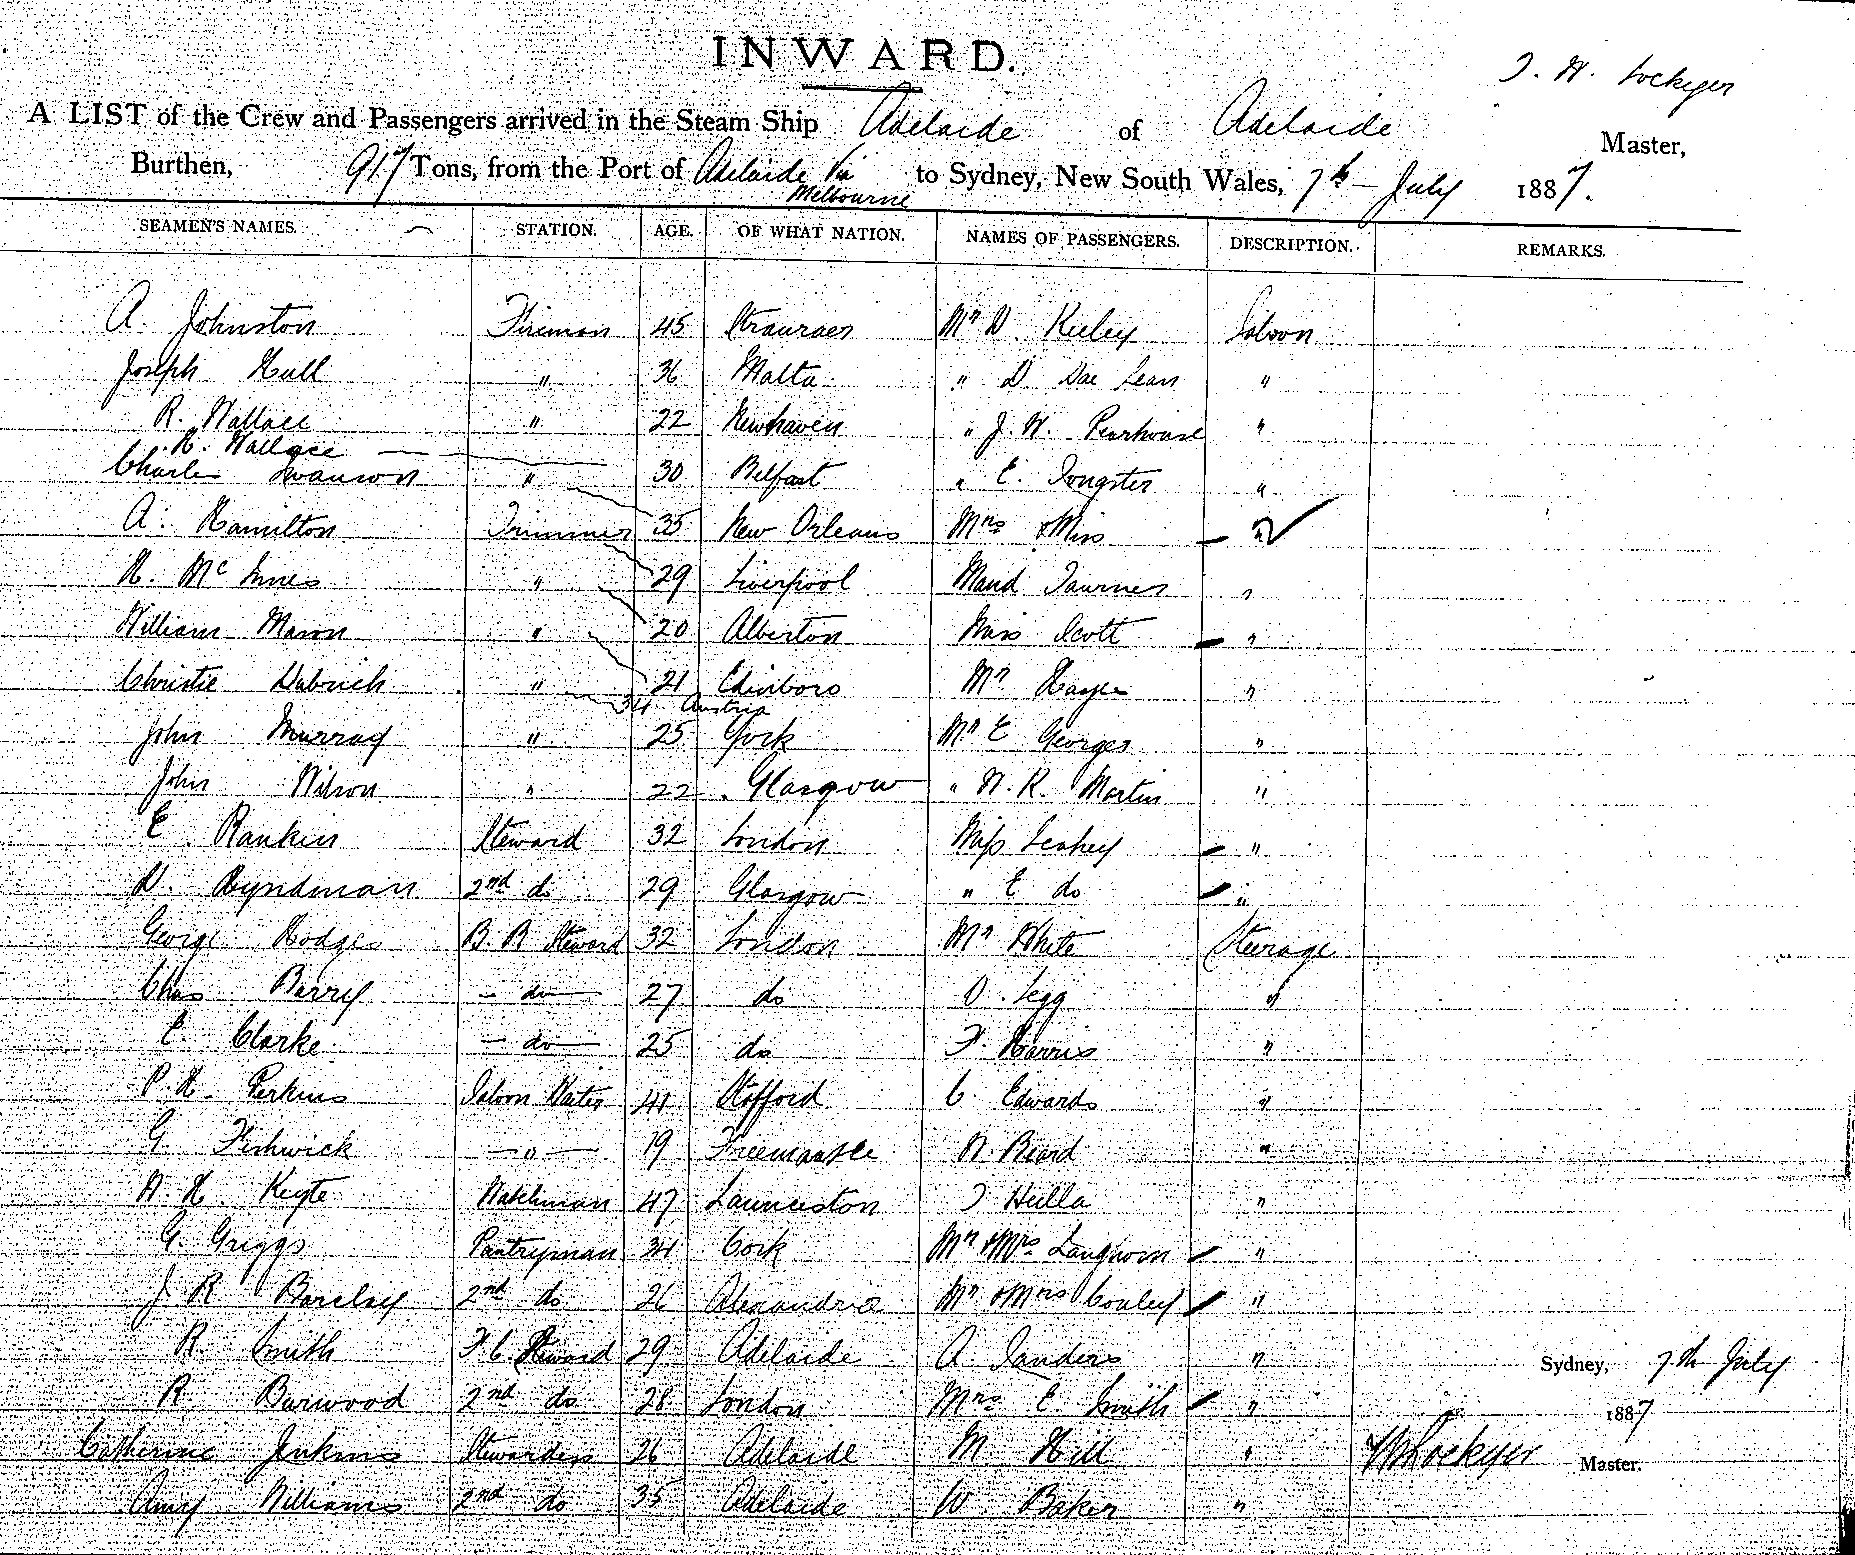 INWARD.
T. W. Lockyer
A LIST of the Crew and Passengers arrived in the Steam Ship Adelaide of Adelaide Master,
Burthen, 917 Tons, from the Port of Adelaide Via Melbourne to Sydney, New South Wales, 7th July 1887.
SEAMEN'S NAMES. STATION. AGE. OF WHAT NATION. NAMES OF PASSENGERS. DESCRIPTION. REMARKS.
A. Johnston Fireman 45 Stranraer Mr D. Kieley Saloon
Joseph Hull " 36 Malta " D. Lean "
R. Wallace " 22 Newhaven " J. W. Pearhouse "
H. Wallace
Charles Swanson " 30 Belfast " E. Songster "
A. Hamilton Trimmer 35 New Orleans Mrs & Miss 2
H. McInnes " 29 Liverpool Maud "
William Mason " 20 Alberton Miss Scott "
Christie Dabrich " 21 Edinboro Mr "
34 Austria
John Murray " 25 York Mr E Georges "
John Wilson " 22 Glasgow " W. R. Martin "
E Rankin Steward 32 London Miss Leahey "
D. Hyndman 2nd do 29 Glasgow " E do "
George Hodges B. R Steward 32 London Mr White Steerage
Chas Berry do 27 do O. Legg "
E. Clarke do 25 do F. Harris "
P. H. Perkins Saloon Waiter 41 Stafford C. Edwards "
G. Fishwick " 19 Freemantle W. Beard "
W. H. Keyte Watchman 47 Launceston T Hulla "
G. Griggs Pantryman 34 Cork Mr & Mrs Langhorn "
J. R Barclay 2nd do 26 Alexandria Mr & Mrs Conley "
R. Smith F. C. Steward 29 Adelaide A. Sanders " Sydney, 7th July
R Burwood 2nd do 28 London Mrs E Smith " 1887
Catherine Jenkins Stewardess 26 Adelaide M Hill " T W Lockyer Master.
Amy Williams 2nd do 35 Adelaide W Baker "